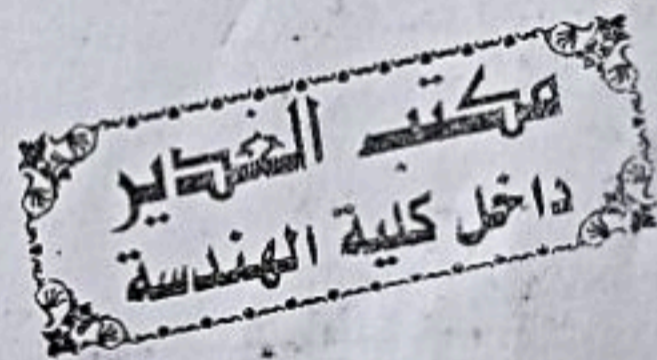 مكتب الغدير
داخل كلية الهندسة